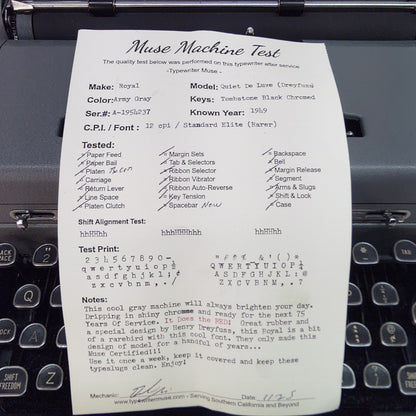 Muse Machine Test
The quality test below was performed on this typewriter after service
-Typewriter Muse -
Make: Royal Model: Quiet De Luxe (Dreyfuss)
Color: Army Gray Keys: Tombstone Black Chromed
Ser.#: A-1954237 Known Year: 1949
C.P.I. / Font: 12 cpi / Standard Elite (Rarer)
Tested:
Paper Feed Margin Sets Backspace
Paper Bail Tab & Selectors Bell
Platen Ribbon Selector Margin Release
Carriage Ribbon Vibrator Segment
Return Lever Ribbon Auto-Reverse Arms & Slugs
Line Space Key Tension Shift & Lock
Platen Clutch Spacebar New Case
Shift Alignment Test:
hhHHhh hhHHhh hhHHhh
Test Print:
2 3 4 5 6 7 8 9 0 - " # $ % _ & ' ( ) *
q w e r t y u i o p ½ Q W E R T Y U I O P ¼
a s d f g h j k l ; A S D F G H J K L :
z x c v b n m , . / Z X C V B N M , . ?
Notes:
This cool gray machine will always brighten your day.
Dripping in shiny chrome and ready for the next 75
Years Of Service. It Does the RED! Great rubber and
a special design by Henry Dreyfuss, this Royal is a bit
of a rarebird with this cool font. They only made this
design of model for a handful of years...
Muse Certified!!!
Use it once a week, keep it covered and keep these
typeslugs clean. Enjoy!
Mechanic: Date 11-25
www.typewritermuse.com - Serving Southern California and Beyond
BACK SPACE
SHIFT FREEDOM
SHIFT FREEDOM
Q
A
S
Z
P
L